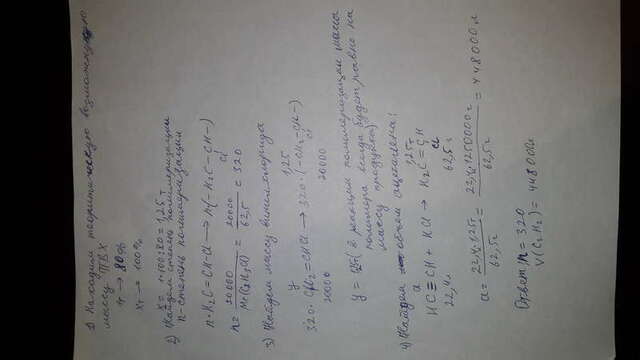 1) Находим теоритическую возможную
массу ПВХ
1т → 80%
xт → 100%
x = 1·100:80 = 1,25т
2) Найдём степень полимеризации
n-степень полимеризации
n·H₂C=CH-Cl → n(-H₂C-CH-)
Cl
n = 20000 / Mr(C₂H₃Cl) = 20000 / 62,5 = 320
3) Найдём массу винилхлорида
y 1,25
320·CH₂=CHCl → 320·(-CH₂-CH-)
Cl
20000 20000
y = (в реакции полимеризации масса
полимера всегда будет равно на
массу продукта)
4) Найдём объём ацетилена:
a 1,25т
HC≡CH + HCl → H₂C=CH
Cl
22,4л 62,5г
a = = 22,4·1250000г / 62,5г = 448000л
62,5г
Ответ: n = 320
V(C₂H₂) = 448000л